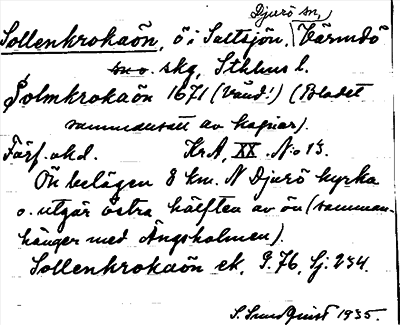 Djurö sn,
Sollenkrokaön, ö i Saltsjön, Värmdö
sn o. skg, Sthlms l.
Solmkrokaön 1671 (Vänd!) (Bladet
sammansatt av kopior).
Färf. okd. KrA, XX. N:o 13.
Ön belägen 8 km. N Djurö kyrka
o. utgör östra hälften av ön (samman-
hänger med Ängsholmen).
Sollenkrokaön ek, G.76, Gj. 234.
S. Sundquist 1935.